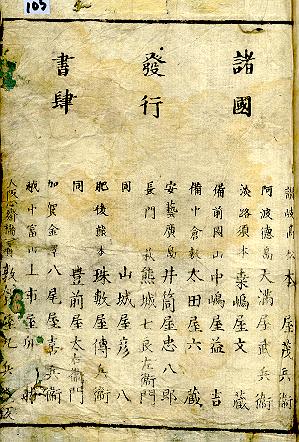 103
諸國
發行
書肆
讃岐高松 本屋茂兵衞
阿波德島 天満屋武兵衞
淡路須本 桒嶋屋文藏
備前岡山 中嶋屋益吉
備中倉敷 太田屋六藏
安藝廣島 井筒屋忠八郎
長門萩 熊城七良左衞門
同 山城屋彦八
肥後熊本 珠數屋傳兵衞
同 豊前屋太右衞門
加賀金澤 八尾屋喜兵衞
越中富山 上市屋卯
敦賀屋九兵衞